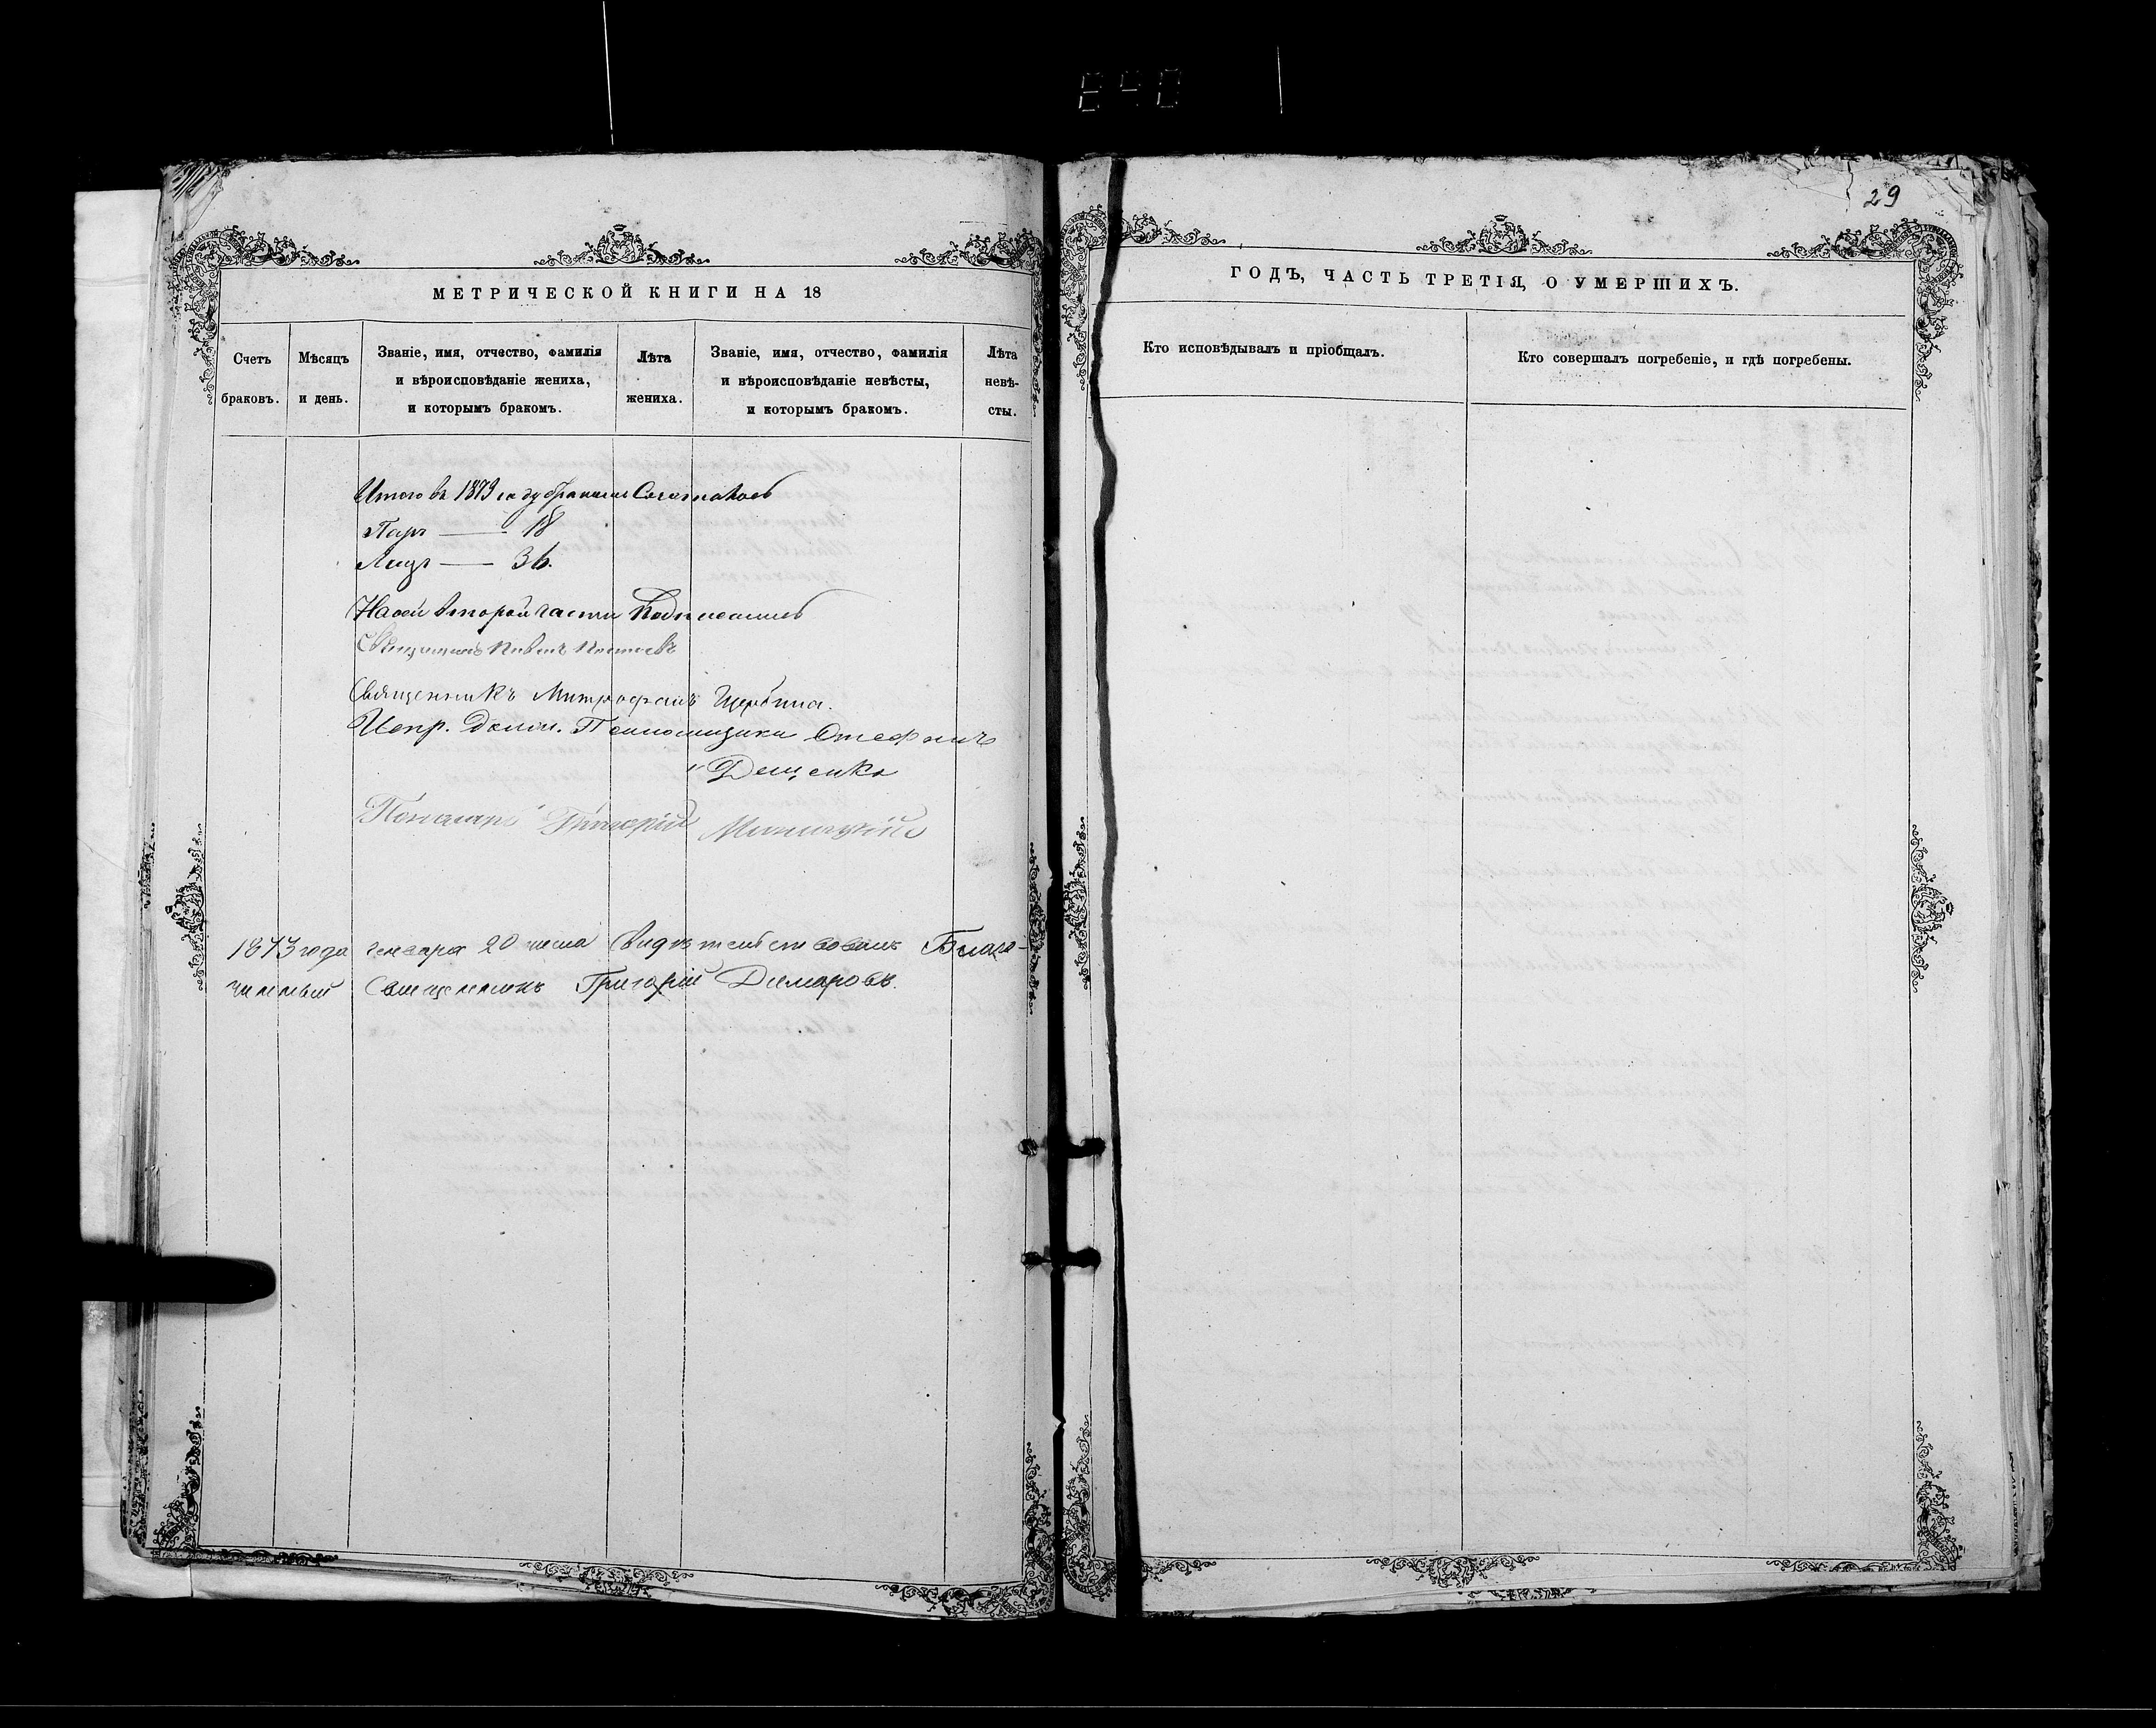 840
МЕТРИЧЕСКОЙ КНИГИ НА 18
Счетъ браковъ.
Мѣсяцъ и день.
Званіе, имя, отчество, фамилія
и вѣроисповѣданіе жениха,
и которымъ бракомъ.
Лѣта жениха.
Званіе, имя, отчество, фамилія
и вѣроисповѣданіе невѣсты,
и которымъ бракомъ.
Лѣта невѣ-
сты.
Итого въ 1873 году бракомъ Сочеталось
Паръ — 18
Лицъ — 36.
На сей второй части Подписались
Священникъ Павелъ
Священникъ Митрофанъ Щербина.
Испр. долж. Псаломщика Стефанъ
Дещенко
Пономарь Григорій
1873 года генваря 20 числа свидѣтельствовалъ Благо-
чинный Священникъ Григорій Демаровъ.
29
ГОДЪ, ЧАСТЬ ТРЕТІЯ, О УМЕРШИХЪ.
Кто исповѣдывалъ и пріобщалъ.
Кто совершалъ погребеніе, и гдѣ погребены.